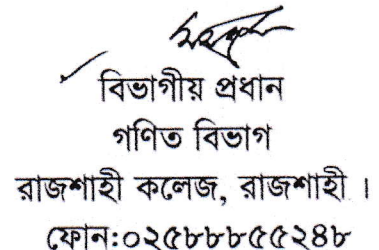 বিভাগীয় প্রধান
গণিত বিভাগ
রাজশাহী কলেজ, রাজশাহী ।
ফোন:০২৫৮৮৮৫৫২৪৮